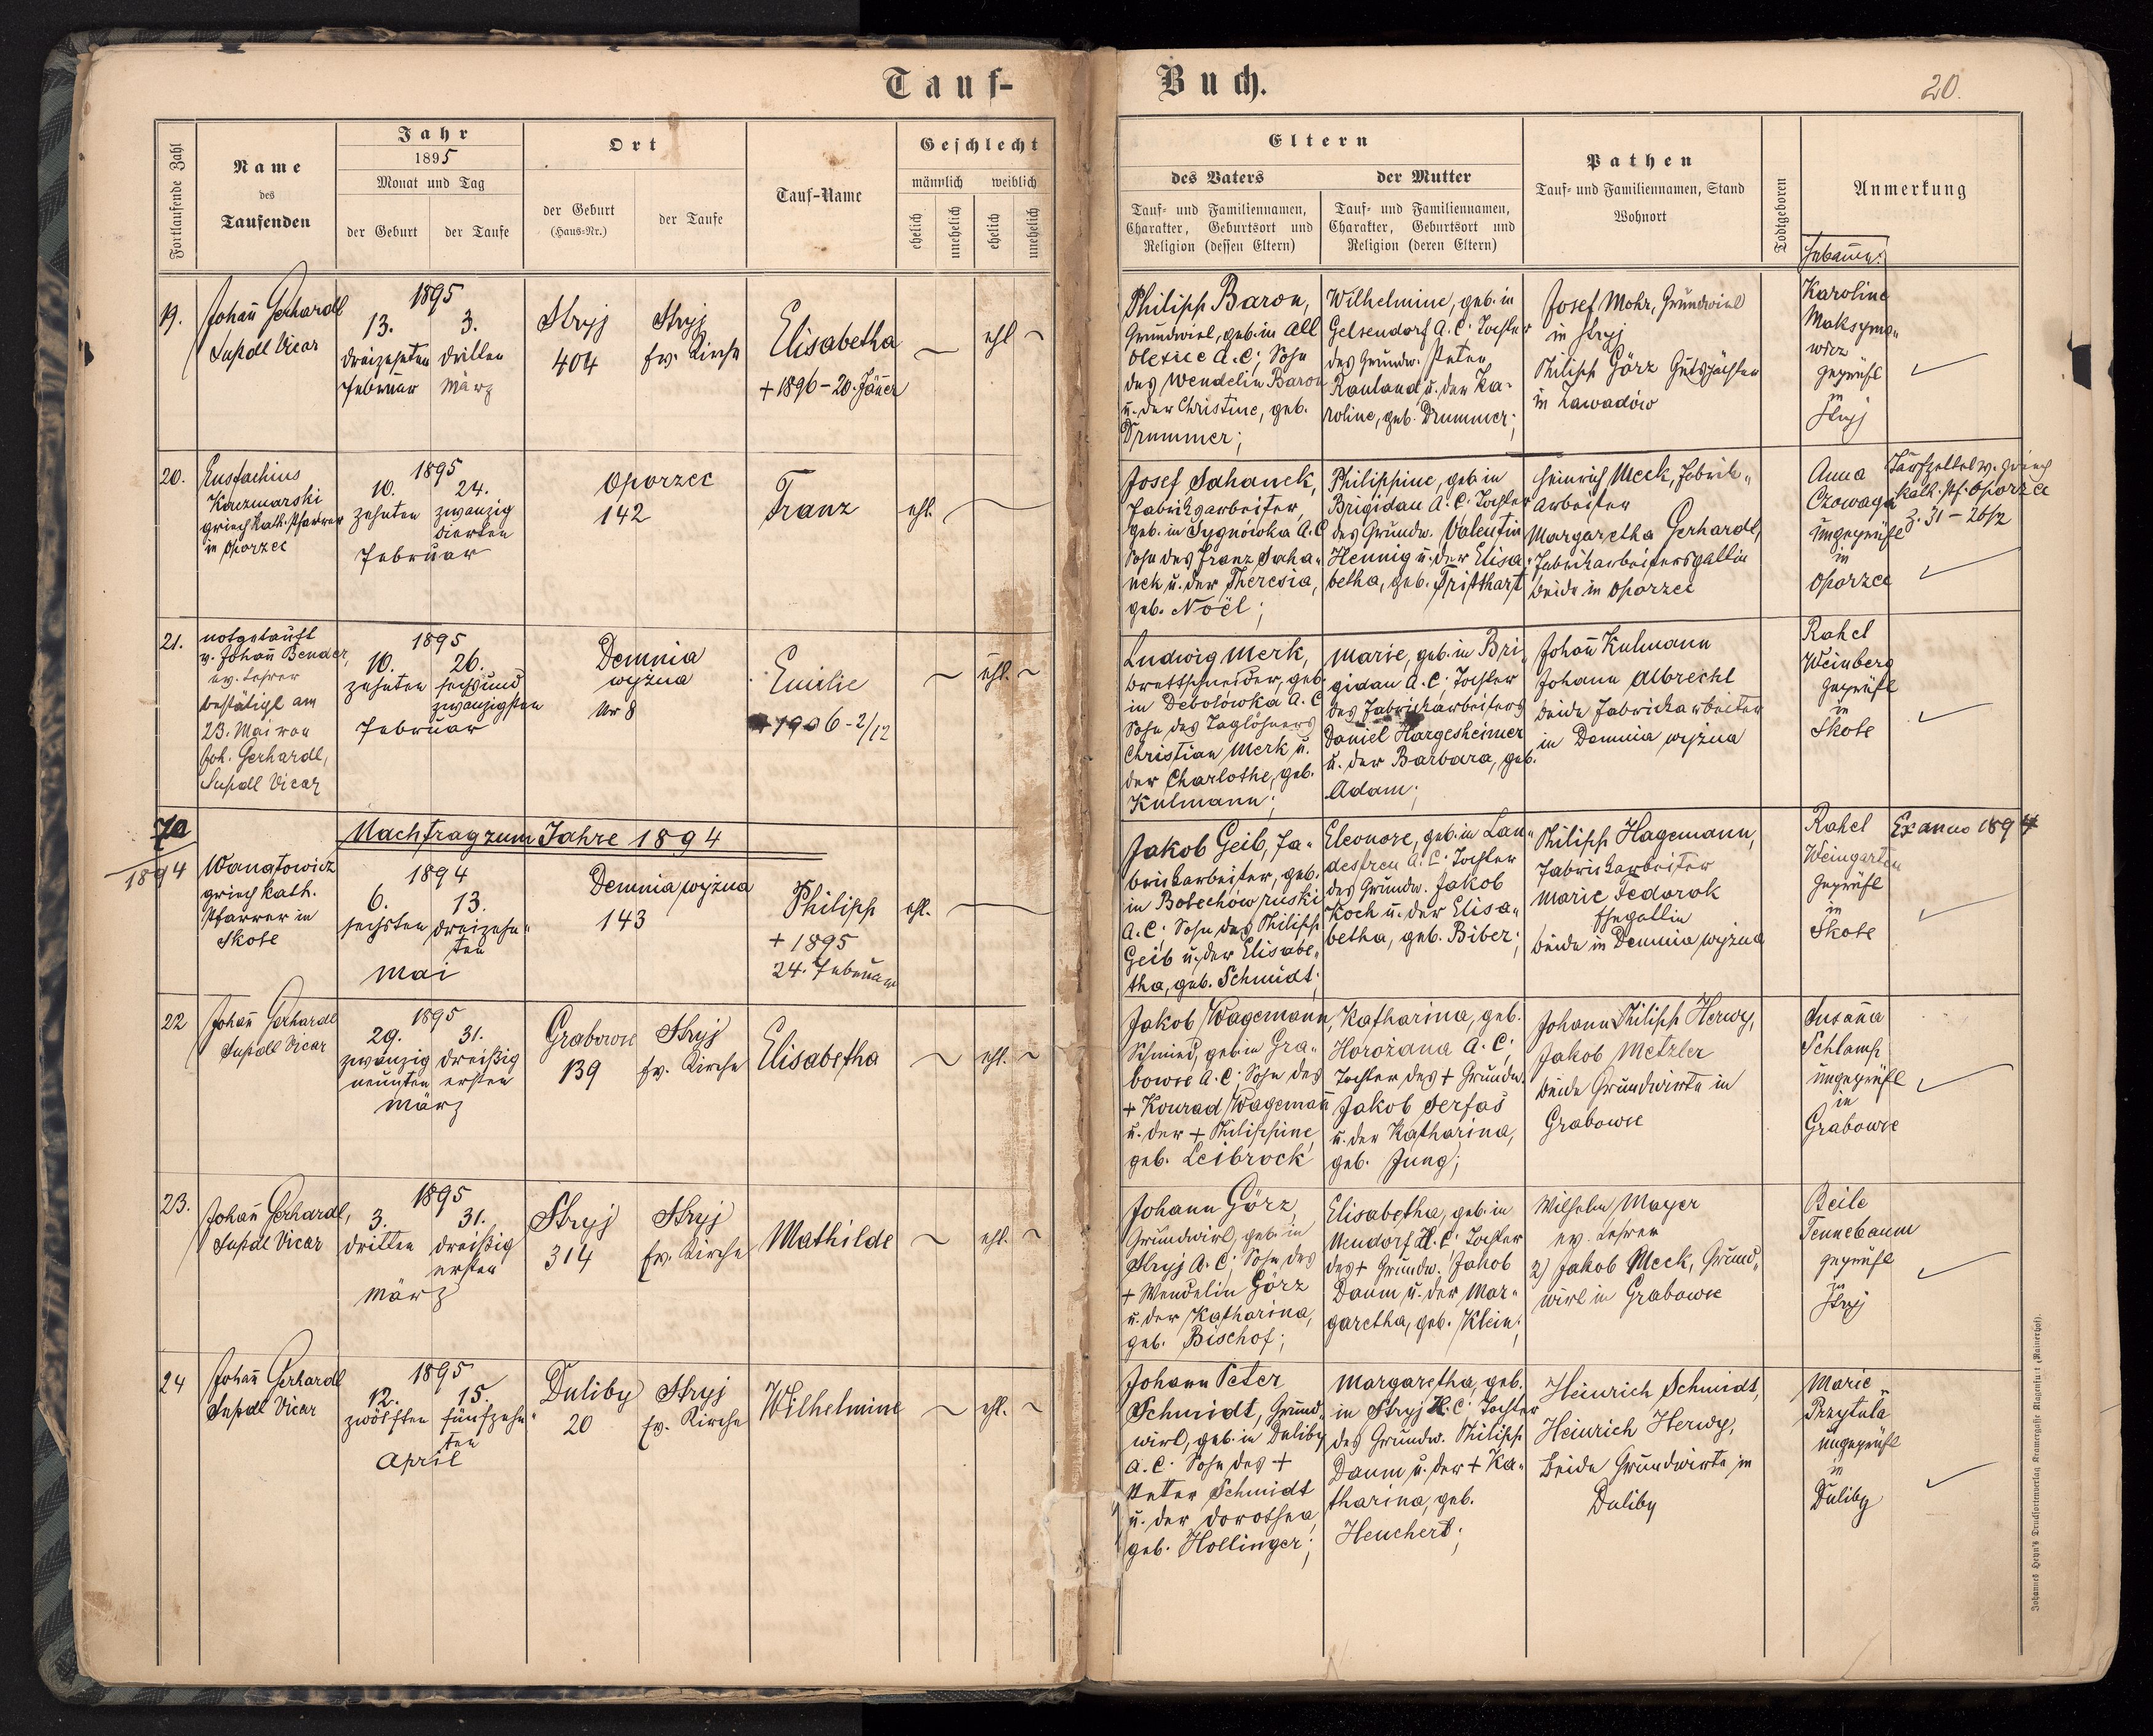 Tauf-
Buch.
20.
Fortlaufende Zahl
Name
des
Taufenden
Jahr
1895
Monat und Tag
der Geburt
der Taufe
Ort
der Geburt
(Haus-Nr.)
der Taufe
Tauf-Name
Geschlecht
männlich
weiblich
ehelich
unehelich
ehelich
unehelich
Eltern
des Vaters
der Mutter
Tauf- und Familiennamen,
Charakter, Geburtsort und
Religion (dessen Eltern)
Tauf- und Familiennamen,
Charakter, Geburtsort und
Religion (deren Eltern)
Pathen
Tauf- und Familiennamen, Stand
Wohnort
Todtgeboren
Anmerkung
Hebamme:
19.
Johañ Gerhardt
Supdtl Vicar
1895
13.
3.
dreizehnten
dritten
Februar
März
Stryj
404
Stryj
Ev. Kirche
Elisabetha
+ 1896 - 20. Jäñer
~
ehl
~
Philipp Baron,
Grundwirt, geb. in All
Olexice A.C.; Sohn
des Wendelin Baron
u. der Christine, geb.
Drummer;
Wilhelmine, geb. in
Gelsendorf A.C. Tochter
des Grundw. Peter
Rauland u. der Ka-
roline, geb. Drummer;
Josef Mohr, Grundwirt
in Stryj
Philipp Görz Gutspächter
in Zawadów
Karoline
Maksymo-
wicz
geprüft
in
Stryj
20.
Eustachius
Kaczmarski
griech. kath. Pfarrer
in Oporzec
1895
10.
24.
zehnten
zwanzig
vierten
Februar
Oporzec
142
Franz
ehl.
Josef Sahanek,
Fabriksarbeiter,
geb. in Sygnówka A.C
Sohn des Franz Saha-
nek u. der Theresia,
geb. Noël;
Philippine, geb. in
Brigidau A.C. Tochter
des Grundw. Valentin
Hennig u. der Elisa-
betha, geb. Tritthart
Heinrich Meck, Fabrik-
arbeiter
Margaretha Gerhardt,
Fabrikarbeitersgattin
beide in Oporzec
Anna
Czowaga
ungeprüft
in
Oporzec
Taufzettel v. griech
kath. Pf. Oporzec
z. 31 - 26/2
21.
notgetauft
v. Johañ Bender,
ev. Lehrer
bestätigt am
23. Mai von
Joh. Gerhardt,
Supdtl Vicar
1895
10.
26.
zehnten
sechsund
zwanzigsten
Februar
Demnia
wyżna
Nr 8
Emilie
+ 1906 - 2/12
~
ehl.
~
Ludwig Merk,
Brettschneider, geb.
in Debolówka A.C
Sohn des Taglöhners
Christian Merk u.
der Charlothe, geb.
Kulmann;
Marie, geb. in Bri-
gidau A.C; Tochter
des Fabrikarbeiters
Daniel Hargesheimer
u. der Barbara, geb.
Adam;
Johañ Kulmann
Johann Albrecht
beide Fabrikarbeiter
in Demnia wyżna
Rahel
Weinberg
geprüft
in
Skole
70
1894
Nachtrag zum Jahre 1894
griech. kath.
Pfarrer in
Skole
1894
6.
13.
sechsten
dreizehn-
ten
Mai
Demnia wyżna
143
Philipp
+ 1895
24. Februar
ehl.
Jakob Geib, Fa-
brikarbeiter, geb.
in Bolechów ruski
A.C. Sohn des Philipp
Geib u. der Elisabe-
tha, geb. Schmidt;
Eleonore, geb. in Lan-
destreu A.C. Tochter
des Grundw. Jakob
Koch u. der Elisa-
betha, geb. Biber;
Philipp Hagemann,
Fabrikarbeiter
Marie Fedorak
Ehegattin
beide in Demnia wyżna
Rahel
Weingarten
geprüft
in
Skole
Ex anno 1894
22
Johañ Gerhardt
Supdtl Vicar
1895
29.
31.
zwanzig
dreißig
neunten
ersten
März
Grabowce
139
Stryj
Ev. Kirche
Elisabetha
~
ehl.
~
Jakob Wagemann,
Schmied, geb. in Gra-
bowce A.C; Sohn des
+ Konrad Wagemañ
u. der + Philippine
geb. Leibrock
Katharina, geb.
Horożana A.C;
Tochter des + Grundw.
Jakob Serfas
u. der Katharina,
geb. Jung;
Johann Philipp Herwy,
Jakob Metzler
beide Grundwirte in
Grabowce
Susaña
Schlamp
ungeprüft
in
Grabowce
23.
Johañ Gerhardt,
Supdtl Vicar
1895
3.
31.
dritten
dreißig
ersten
März
Stryj
314
Stryj
Ev. Kirche
Mathilde
~
ehl.
~
Johann Görz,
Grundwirt, geb. in
Stryj A.C; Sohn des
+ Wendelin Görz
u. der Katharina,
geb. Bischof;
Elisabetha, geb. in
Neudorf H.C; Tochter
des + Grundw. Jakob
Daum u. der Mar-
garetha, geb. Klein;
Wilhelm Mayer
ev. Lehrer
2) Jakob Meck, Grund-
wirt in Grabowce
Beile
Tennebaum
geprüft
in
Stryj
24
Johañ Gerhardt
Supdtl Vicar
1895
12.
15.
zwölften
fünfzehn-
ten
April
Duliby
20
Stryj
Ev. Kirche
Wilhelmine
~
ehl.
~
Johann Peter
Schmidt, Grund-
wirt, geb. in Duliby
A.C. Sohn des +
Peter Schmidt
u. der Dorothea,
geb. Hollinger;
Margaretha, geb.
in Stryj H.C. Tochter
des Grundw. Philipp
Daum u. der + Ka-
tharina, geb.
Heuchert;
Heinrich Schmidt,
Heinrich Herwy,
beide Grundwirte in
Duliby
Marie
Przytula
ungeprüft
in
Duliby
Johannes Heyn's Drucksortenverlag Kramergasse Klagenfurt